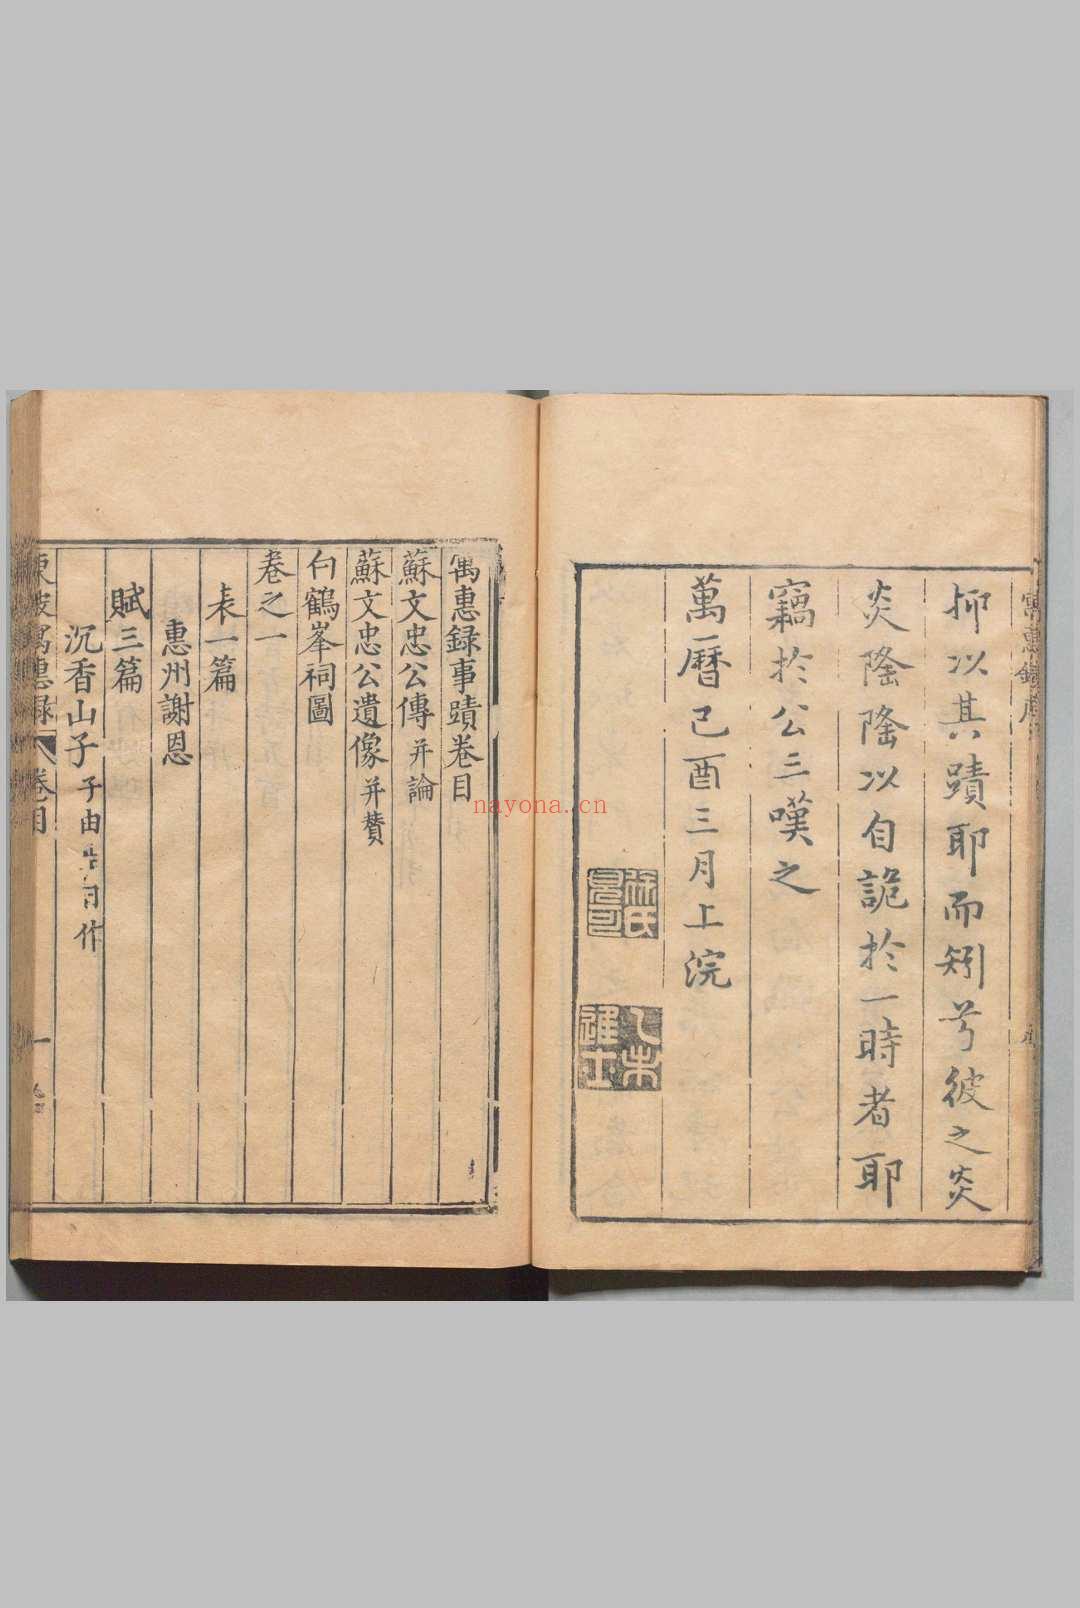 寓惠録序
抑以其蹟耶而矧兮彼之炎
炎隆隆以自詭於一時者耶
竊於公三嘆之
萬曆己酉三月上浣
徐氏
乙未進士
寓惠録事蹟卷目
蘇文忠公傳并論
蘇文忠公遺像并賛
白鶴峯祠圖
卷之一
表一篇
惠州謝恩
賦三篇
沉香山子子由生日作
東坡寓惠録 卷目 一
nayona.cn